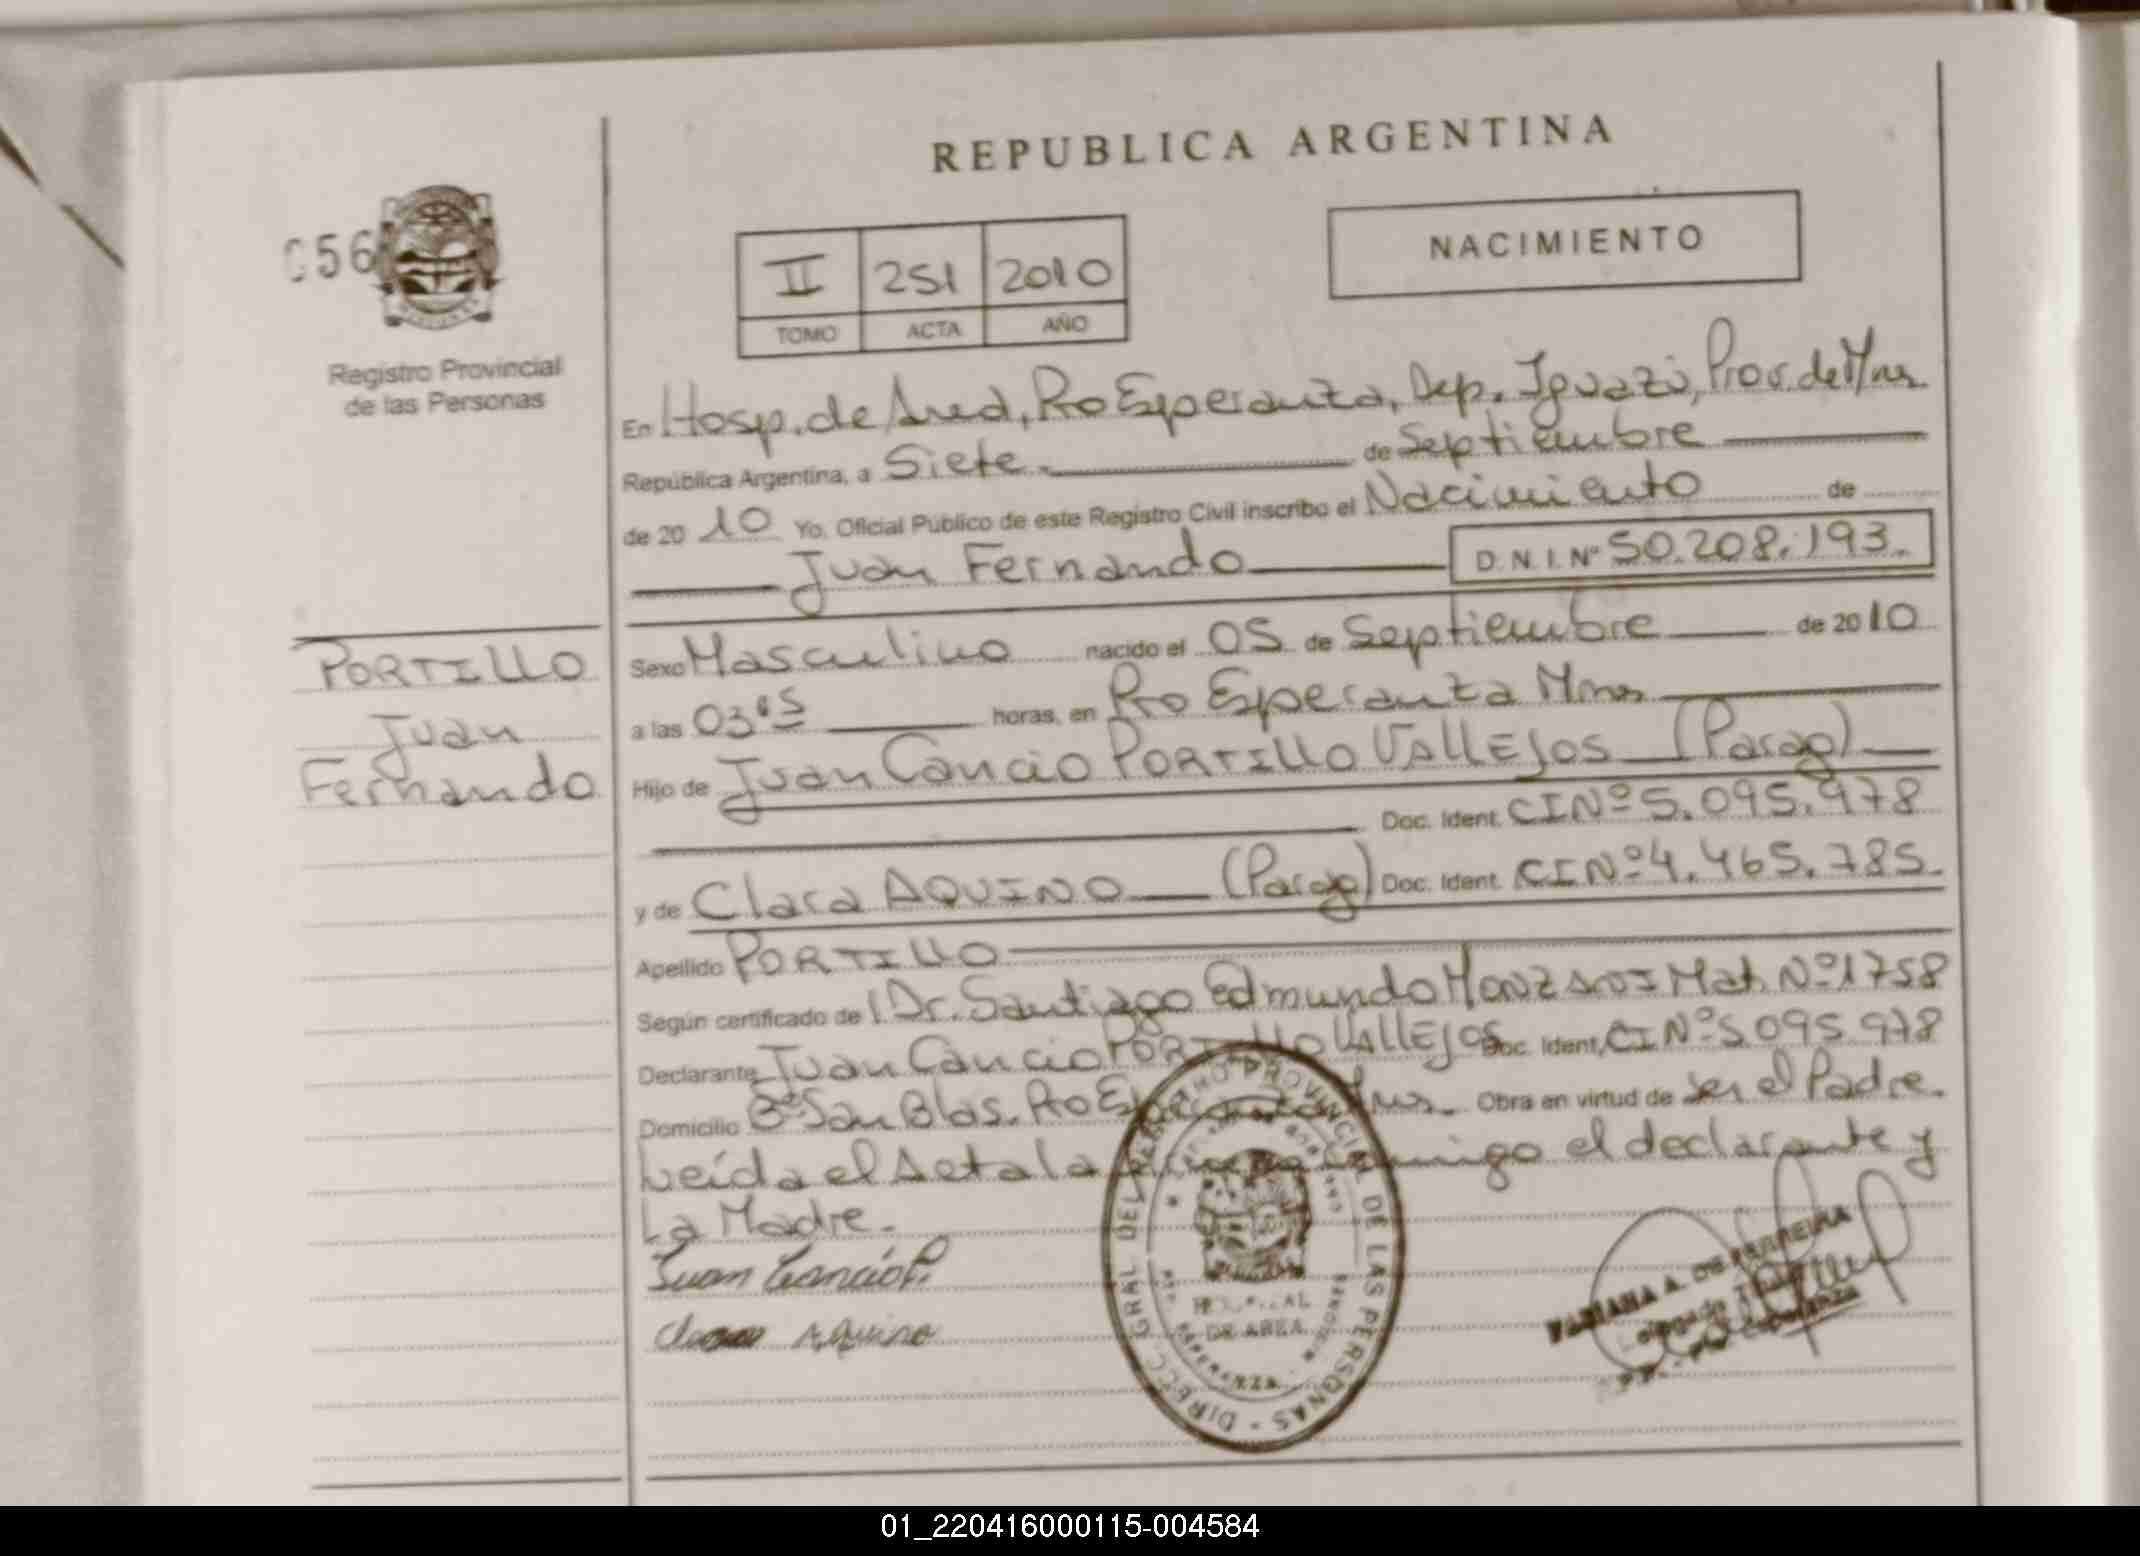 REPUBLICA ARGENTINA
056
II 251 2010
TOMO ACTA AÑO
NACIMIENTO
Registro Provincial
de las Personas
En Hosp. de Area, Pto Esperanza, Dep. Iguazú, Prov. de Mnes
República Argentina, a Siete de Septiembre
de 2010 Yo, Oficial Público de este Registro Civil inscribo el Nacimiento de
Juan Fernando D.N.I. Nº 50.208.193.
PORTILLO
Juan
Fernando
Sexo Masculino nacido el 05 de Septiembre de 2010
a las 03 horas, en Pto Esperanza Mnes
Hijo de Juan Cancio PORTILLO VALLEJOS (Parag)
Doc. Ident. CI Nº 5.095.978
y de Clara AQUINO (Parag) Doc. Ident. CI Nº 4.465.785.
Apellido PORTILLO
Según certificado de Dr. Santiago Edmundo MONZANI Mat. Nº 1758
Declarante Juan Cancio PORTILLO VALLEJOS Doc. Ident. CI Nº 5.095.978
Domicilio Bº San Blas. Pto Esperanza Mnes. Obra en virtud de ser el Padre.
Leída el Acta la firma conmigo el declarante y
La Madre.
Juan Cancio P.
Clara Aquino
DIRECC. GRAL DEL REGISTRO PROVINCIAL DE LAS PERSONAS
HOSPITAL
DE AREA
ESPERANZA
FABIANA A. DE FERREIRA
01_220416000115-004584